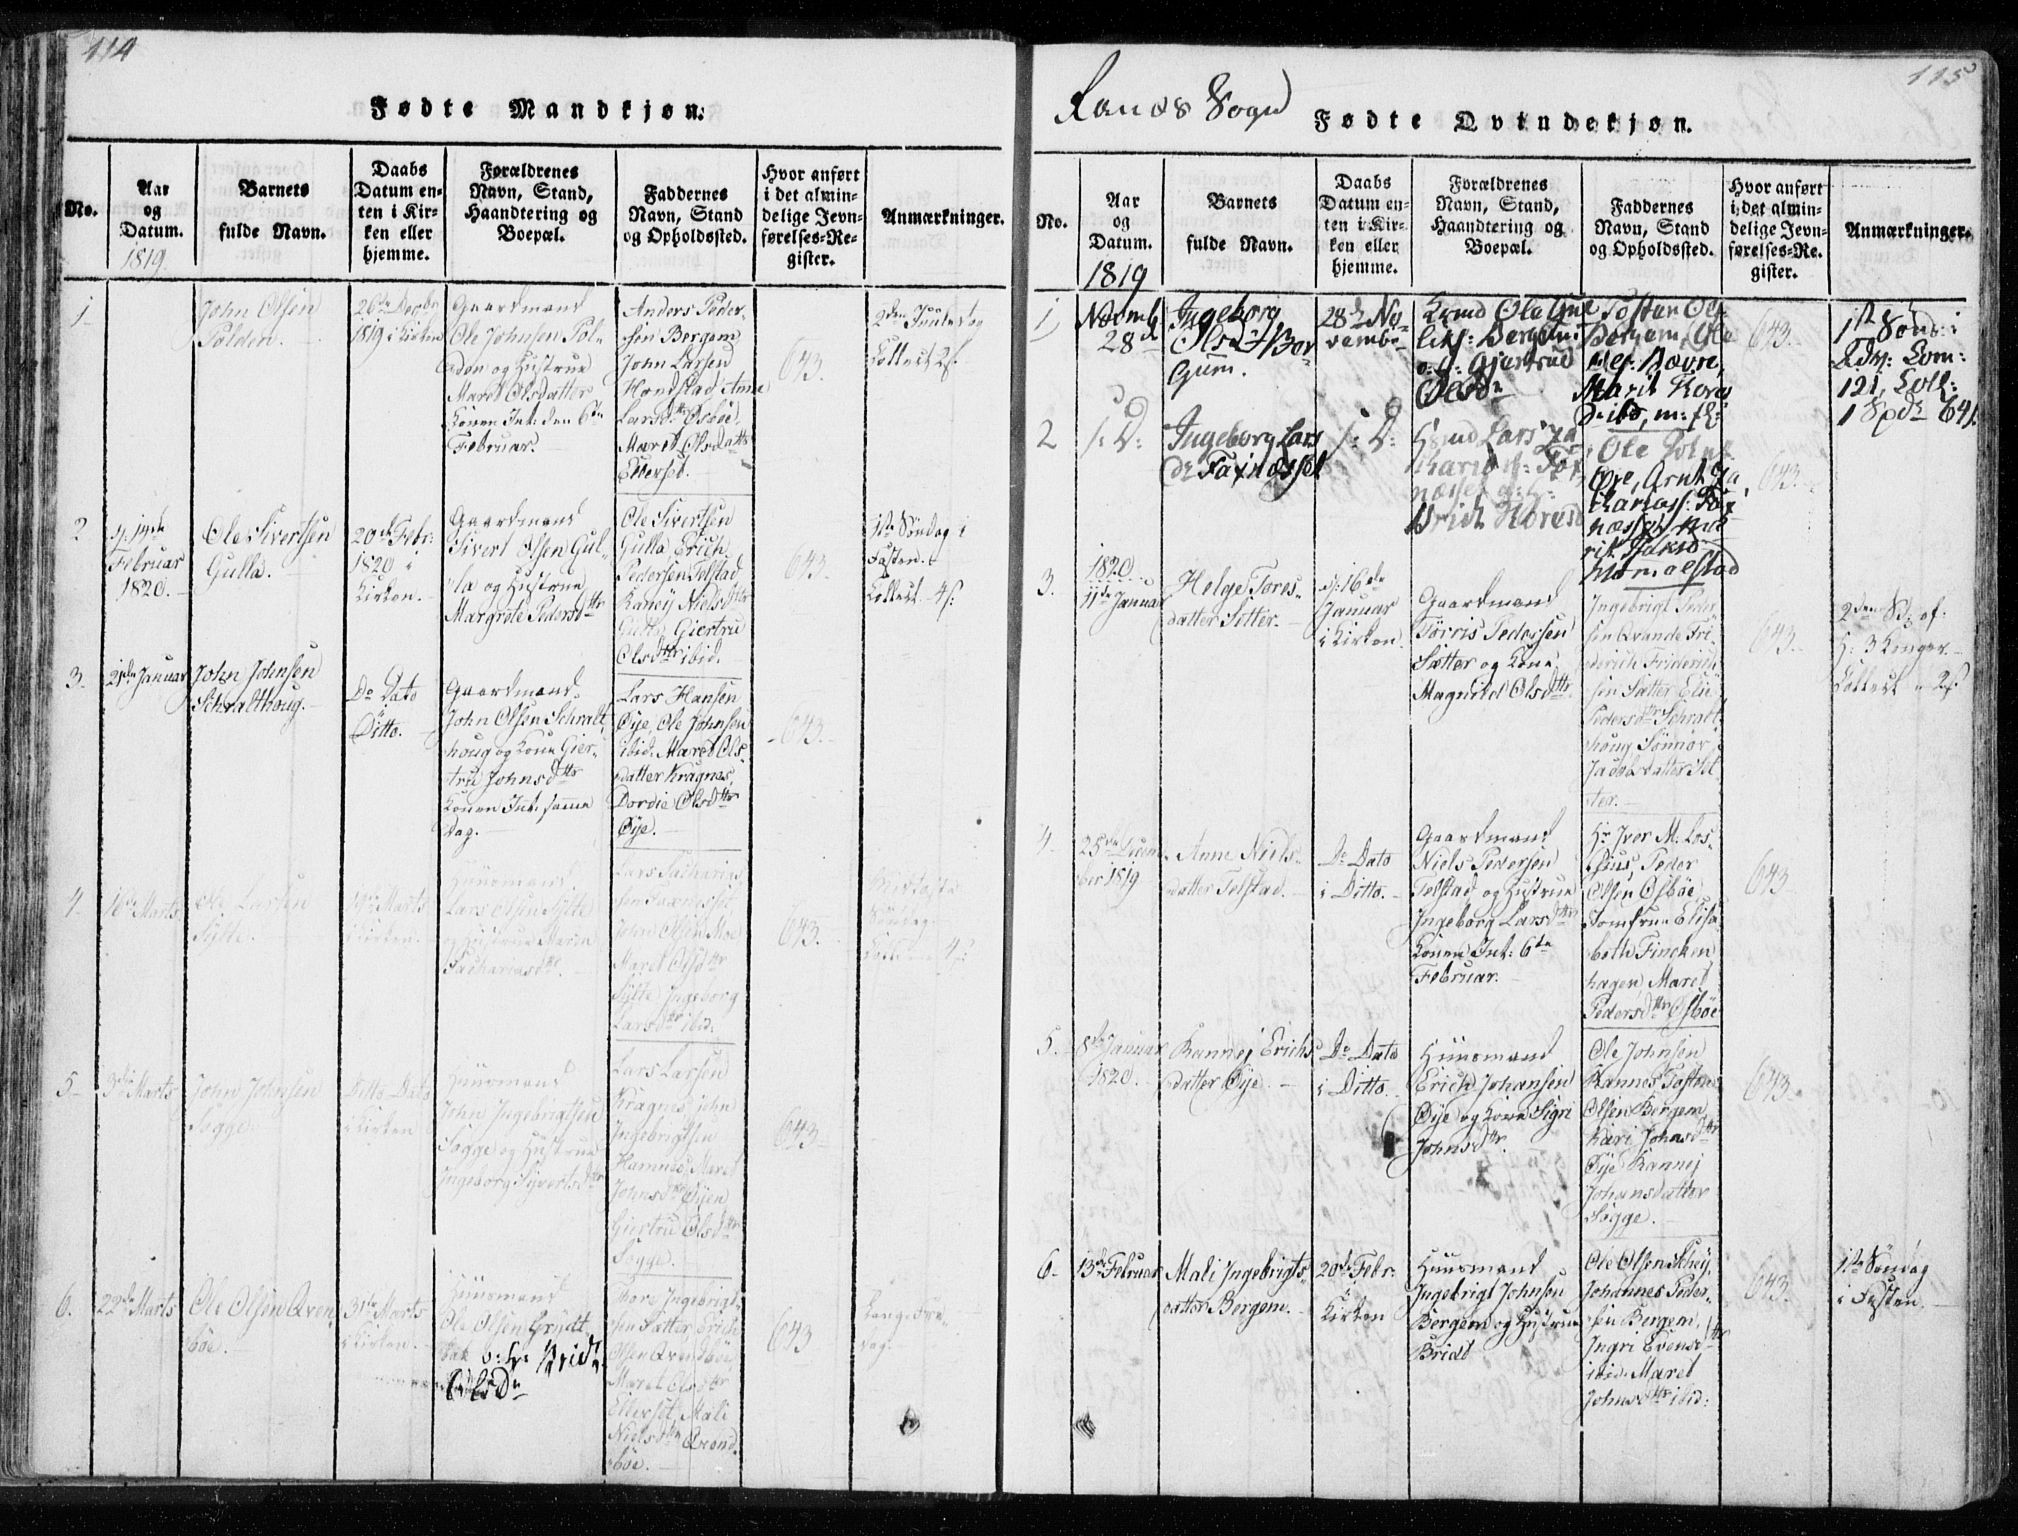 114
Fødte Mandkjøn.
No.
Aar
og
Datum.
1819
Barnets
fulde Navn.
Daabs
Datum en-
ten i Kir-
ken eller
hjemme.
Forældrenes
Navn, Stand,
Haandtering og
Boepæl.
Faddernes
Navn, Stand
og Opholdssted.
Hvor anført
i det almin-
delige Jevn-
førelses-Re-
gister.
Anmærkninger.
1
John Olsen
Polden.
26de Decbr
1819 i Kirken
Gaardmand
Ole Johnsen Pol-
den og Hustrue
Maret Olsdatter
Konen Int: den 6te
Februar.
Anders Peder-
sen Bergem
John Larsen
Handstad, Anne
Larsdtr Osbøe,
Maret Olsdatt
Ellerset.
643.
2den Juuledag
Collect 2ſ.
2
14de
Februar
1820.
Ole Sivertsen
Gulla.
20de Febr:
1820 i
Kirken.
Gaardmand
Sivert Olsen Gul-
la og Hustrue
Margrete Pedersdttr
Ole Sivertsen
Gulla, Erich
Pedersen Telstad
Ranej Nielsdttr
Gulla, Giertru
Olsdttr ibid.
643.
1ste Søndag i
Fasten.
Collect 4ſ:
3.
21de Januar
John Johnsen
Schralthoug.
Do Dato
i
Ditto.
Gaardmand
John Olsen Schralt
houg og Kone Gier-
tru Johnsdttr
Konen Int: samme
dag.
Lars Hansen
Øye, Ole Johnsen
ibid. Maret Ols-
datter Kragnes,
Dordie Olsdttr
Øye.
643.
4.
16de Marts
Ole Larsen
Sylte.
19de Marts
i Kirken.
Huusmand
Lars Olsen Sylte
og Hustrue Maren
Zachariasdtr.
Lars Zacharias
sen Faxnesset
John Olsen Moe
Maret Olsdttr
Sylte Ingeborg
Larsdttr ibid:
643.
Søndag
4ſ:
5
3die Marts
John Johnsen
Søgge.
Ditto Dato
i Kirken
Huusmand
John Ingebrigtsen
Søgge og Hustrue
Ingeborg Syvertsdttr
Lars Larsen
Kragnes, John
Ingebrigtsen
Hamnes, Maret
Johnsdtr Øyen
Giertru Olsdttr
Søgge.
643
6.
22de Marts
Ole Olsen Qven
bøe.
31te Marts
i Kirken.
Huusmand
Ole Olsen
Olsdr
Tore Ingebrigt-
sen Sætter, Erich
Olsen Qvendbøe
Maret Olsdtr
Ellerset, Mali
Nielsdtr Qvend
bøe.
643
Lang-Fre-
dag.
115
Ranes Sogn
Fødte Qvindekjøn.
No.
Aar
og
Datum.
1819
Barnets
fulde Navn.
Daabs
Datum en-
ten i Kir-
ken eller
hjemme.
Forældrenes
Navn, Stand,
Haandtering og
Boepæl.
Faddernes
Navn, Stand
og Opholdssted.
Hvor anført
i det almin-
delige Jevn-
førelses-Re-
gister.
Anmærkninger.
1
Novemb
28d
Ingeborg
Olsdtr Ber-
gum.
28de No-
vembr
Olesdr
Tosten Ols
Bergem, Ole
643.
1ste Sønd: i
Adv:
2
/: D:
Ingeborg Lars
dr Faxnesset
/: D:
643.
3.
1820.
11te Januar
Helge Tores-
datter Setter.
d: 16de
Januar
i Kirken.
Gaardmand
Torris Pedersen
Sætter og Kone
Magnild Olsdttr.
Ingebrigt Peder
sen Qvande Fri-
derich Friderich
sen Sætter Eli
Pedersdtr Schralt
houg Sønnør
Jacobsdatter Set
ter.
643
2den Sø: ef.
H: 3 Konger.
Collect 2ſ.
4.
25de Decem-
ber 1819
Anne Niels-
datter Telstad.
Do Dato
i Ditto.
Gaardmand
Niels Pedersen
Telstad og Hustrue
Ingeborg Larsdttr
Konen Int: 6te
Februar.
Hr Iver M. Los-
sius, Peder
Olsen Osbøe
Jomfrue Elisa
beth Fincken
hagen Maret
Pedersdtr Osbøe
643.
5.
8de Januar
1820.
Rannej Erichs
datter Øye.
Do Dato
i Ditto.
Huusmand
Erich Johansen
Øye og Kone Sigri
Johnsdttr.
Ole Johnsen
Rannes Tosten
Olsen Bergem,
Kari Johnsdttr
Øye Rannej
Johansdatter
Søgge.
643.
6.
13de Februar
Mali Ingebrigts-
datter Bergem.
20de Febr:
i
Kirken
Huusmand
Ingebrigt Johnsen
Bergem og Hustrue
Bridt
Ole Olsen Skey,
Johannes Peder-
sen Bergem,
Ingri Evensdttr
ibid. Maret
Johnsdttr ibid:
643.
1ste Søndag
i Fasten.